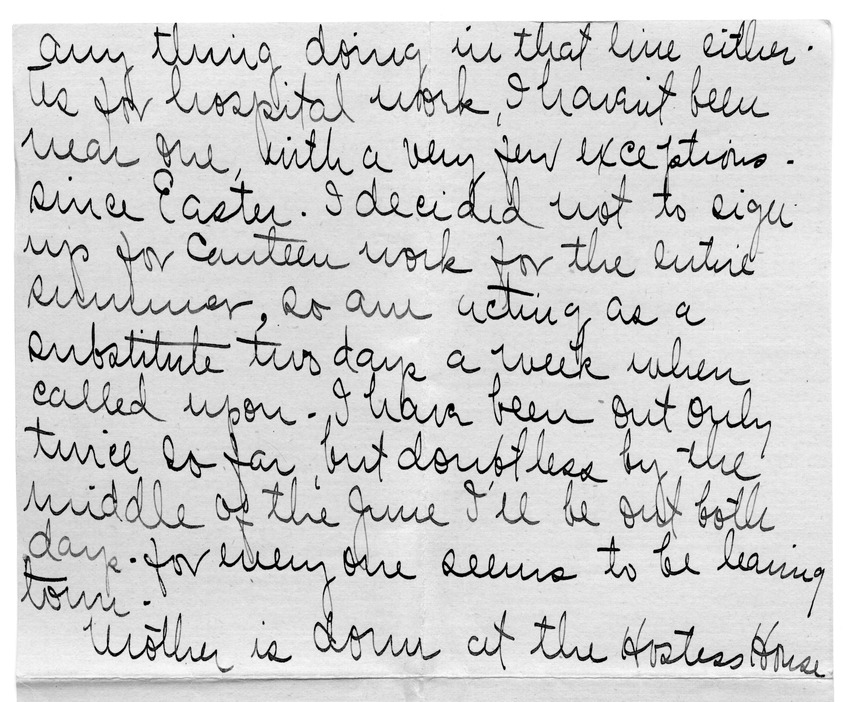 any thing doing in that line either.
As for hospital work, I haven't been
near one, with a very few exceptions -
since Easter. I decided not to sign
up for Canteen work for the entire
summer, so am acting as a
substitute two days a week when
called upon. I have been out only
twice so far, but doubtless by the
middle of the June I'll be out both
days. for every one seems to be leaving
town.
Mother is down at the Hostess House